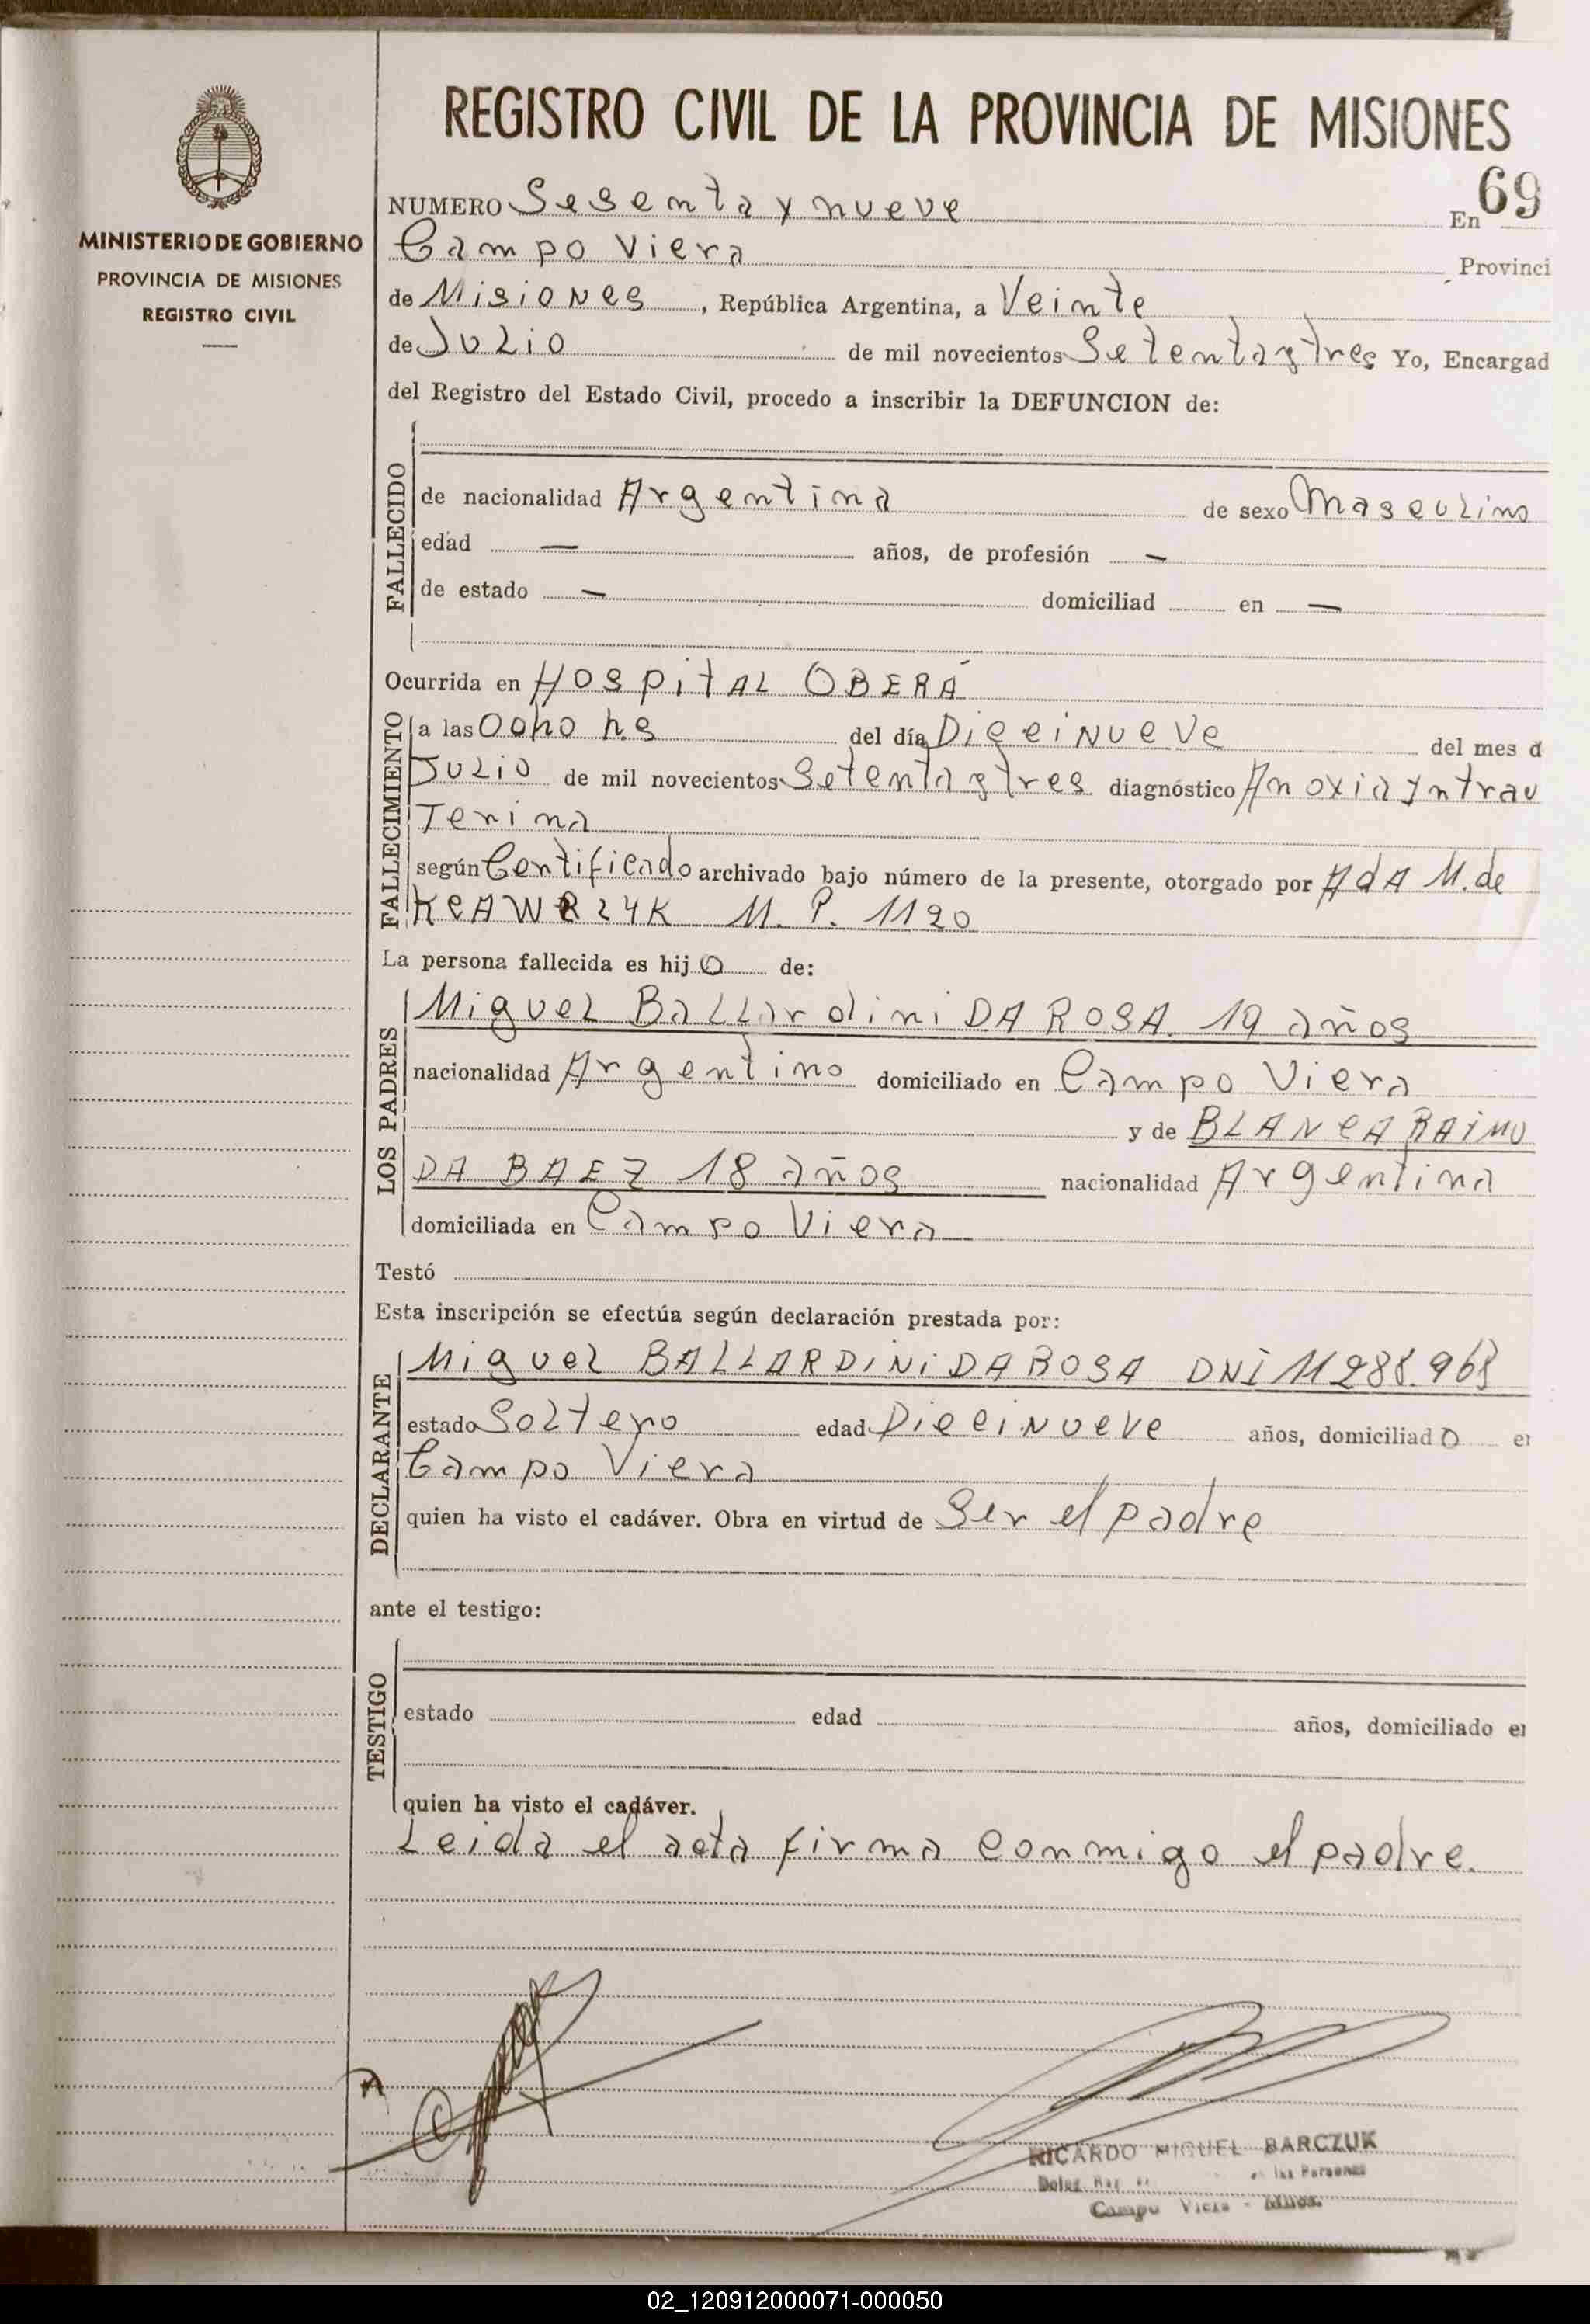 REGISTRO CIVIL DE LA PROVINCIA DE MISIONES
MINISTERIO DE GOBIERNO
PROVINCIA DE MISIONES
REGISTRO CIVIL
NUMERO Sesenta y nueve En 69
Campo Viera Provinci
de Misiones, República Argentina, a Veinte
de Julio de mil novecientos Setentaytres Yo, Encargad
del Registro del Estado Civil, procedo a inscribir la DEFUNCION de:
FALLECIDO
de nacionalidad Argentina de sexo Masculino
edad — años, de profesión —
de estado — domiciliad en —
Ocurrida en HospitAL OBERÁ
FALLECIMIENTO
a las Ocho hs del día DieciNueve del mes d
Julio de mil novecientos Setentaytres diagnóstico Anoxia yntrau
Terina
según Certificado archivado bajo número de la presente, otorgado por AdA M. de
M. P. 1120
La persona fallecida es hijo de:
LOS PADRES
Miguel Ballardini DA ROSA. 19 años
nacionalidad Argentino domiciliado en Campo Viera
y de BLANCA RAIMU
DA BAEZ 18 años nacionalidad Argentina
domiciliada en Campo Viera
Testó
Esta inscripción se efectúa según declaración prestada por:
DECLARANTE
Miguel BALLARDINI DA ROSA DNI
estado Soltero edad DieciNueve años, domiciliado en
Campo Viera
quien ha visto el cadáver. Obra en virtud de Ser el padre
ante el testigo:
TESTIGO
estado edad años, domiciliado en
quien ha visto el cadáver.
Leida el acta firma conmigo el padre.
RICARDO MIGUEL BARCZUK
las Personas
Campo Viera - Mnes.
02_120912000071-000050